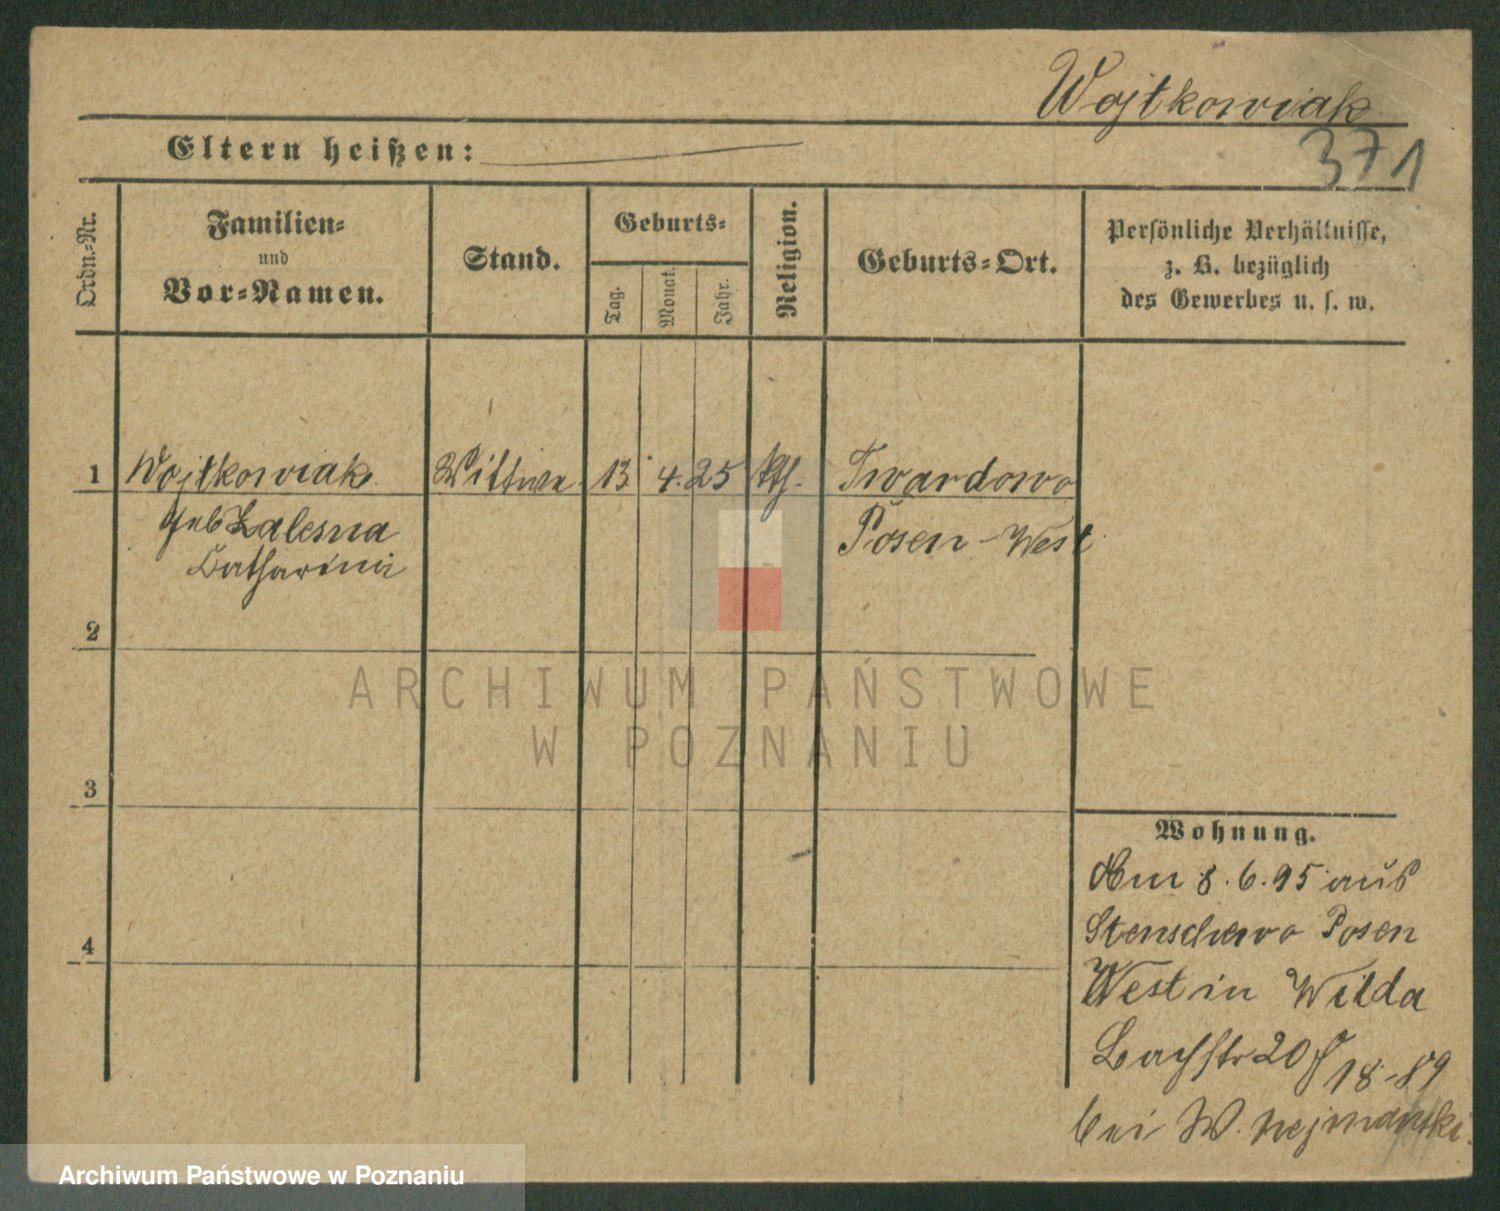 Wojtkowiak
371
Eltern heißen:
Ordn.-Nr.
Familien-
und
Vor-Namen.
Stand.
Geburts-
Tag.
Monat.
Jahr.
Religion.
Geburts-Ort.
Persönliche Verhältnisse,
z. B. bezüglich
des Gewerbes u. s. w.
1 Wojtkowiak Wittwe 13 4. 25 kth. Twardowo
geb Zalesna Posen-West
Catharina
2
3
4
Wohnung.
Am 8.6.95 aus
Stenschewo Posen
West in Wilda
Bachstr 20
18-89
bei W.
ARCHIWUM PAŃSTWOWE
W POZNANIU
Archiwum Państwowe w Poznaniu